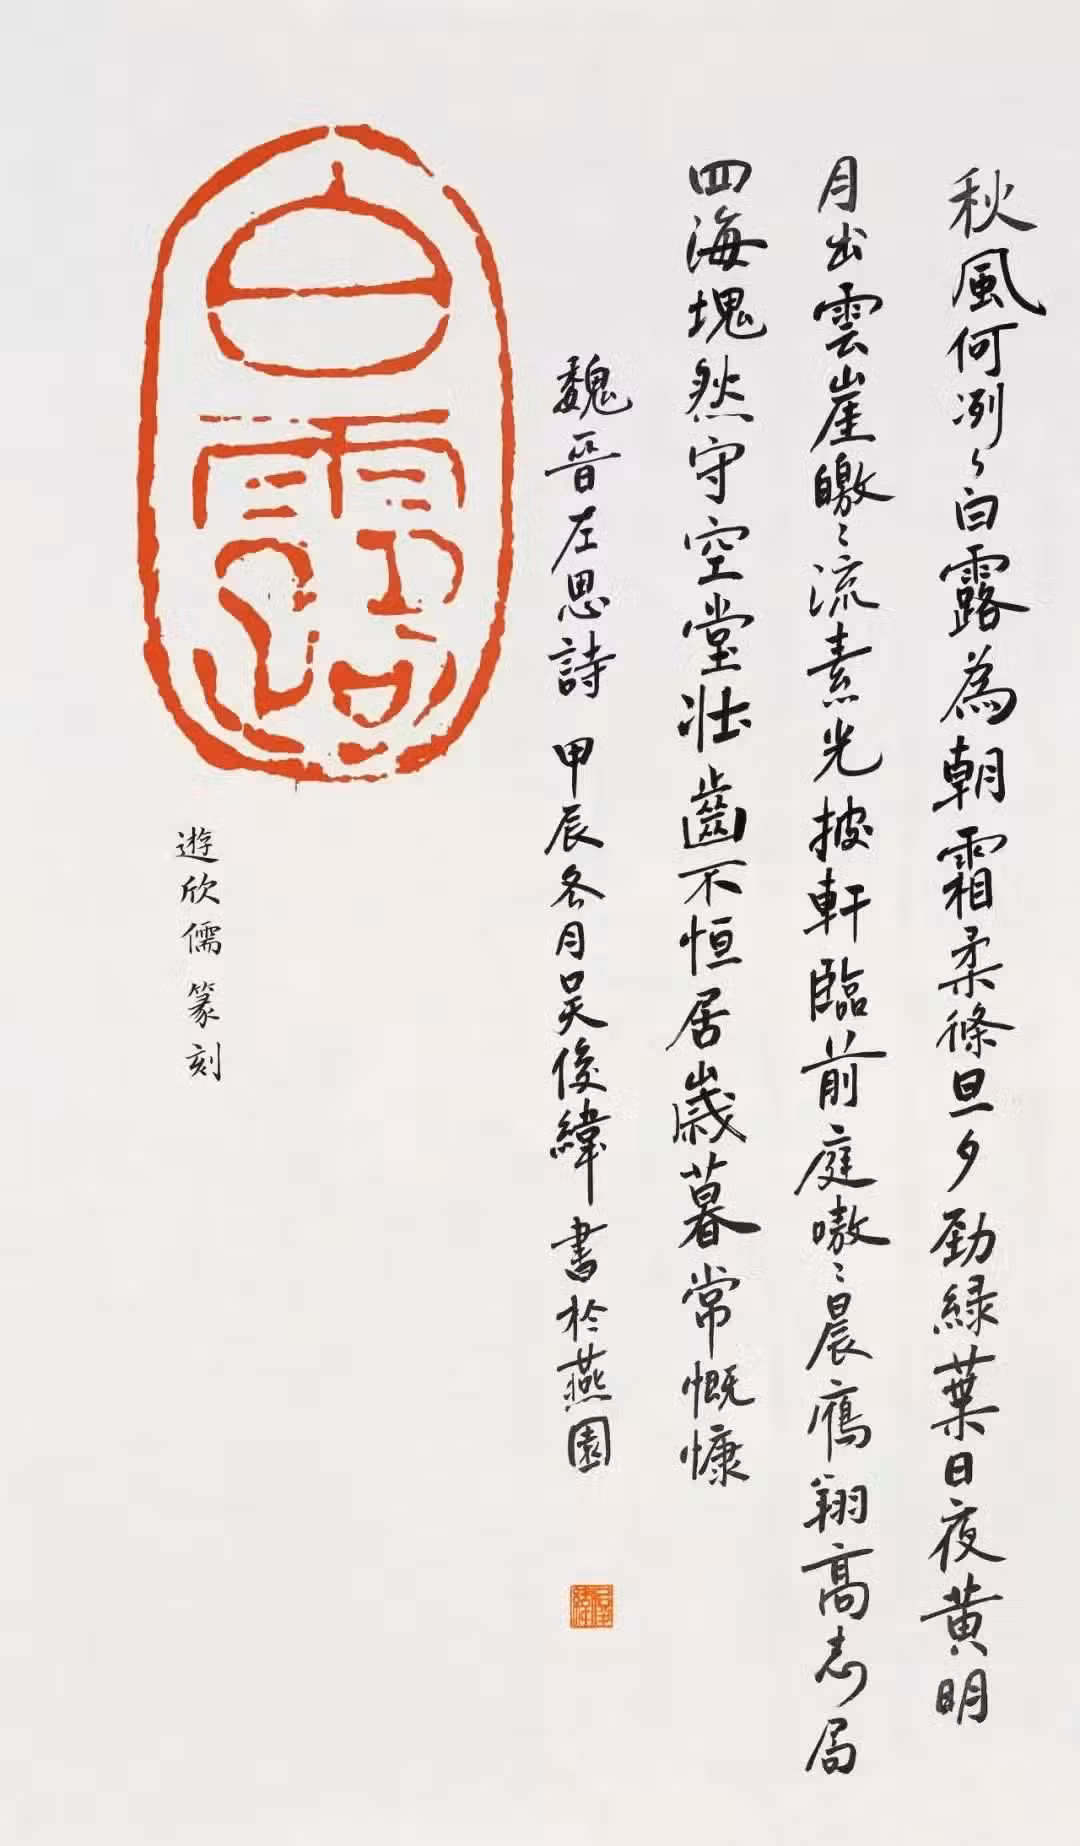 秋風何冽〻白露為朝霜柔條旦夕勁綠葉日夜黃明
月出雲崖皦〻流素光披軒臨前庭嗷〻晨鴈翔高志局
四海塊然守空堂壯齒不恒居歲暮常慨慷
魏晉左思詩 甲辰冬月吴俊緯書於燕園
白露
遊欣儒篆刻